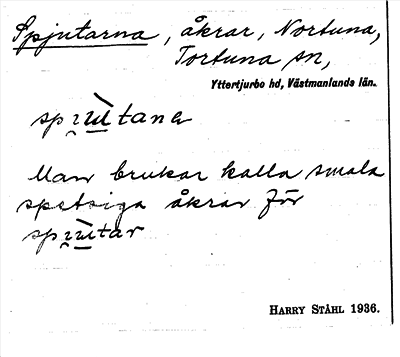 Spjutarna, åkrar, Nortuna,
Tortuna sn,
Yttertjurbo hd, Västmanlands län.
Man brukar kalla smala
spetsiga åkrar för
HARRY STÅHL 1936.